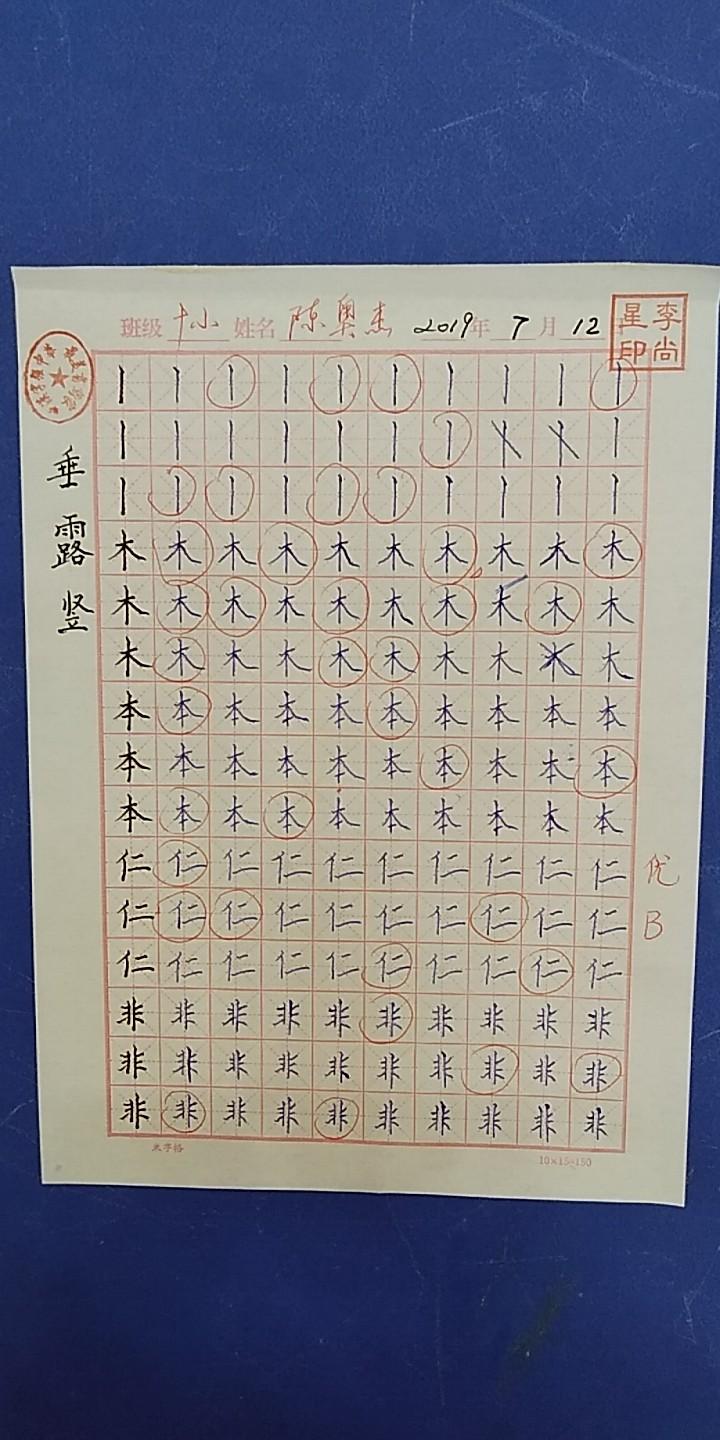 班级 十小 姓名 陈奥杰 2019年 7月 12日
李尚
星印
垂露竖
丨丨丨丨丨丨丨丨丨丨
丨丨丨丨丨丨丨丨丨丨
丨丨丨丨丨丨丨丨丨丨
木木木木木木木木木木
木木木木木木木木木木
木木木木木木木木木木
本本本本本本本本本本
本本本本本本本本本本
本本本本本本本本本本
仁仁仁仁仁仁仁仁仁仁
优
仁仁仁仁仁仁仁仁仁仁
B
仁仁仁仁仁仁仁仁仁仁
非非非非非非非非非非
非非非非非非非非非非
非非非非非非非非非非
米字格
10×15=150